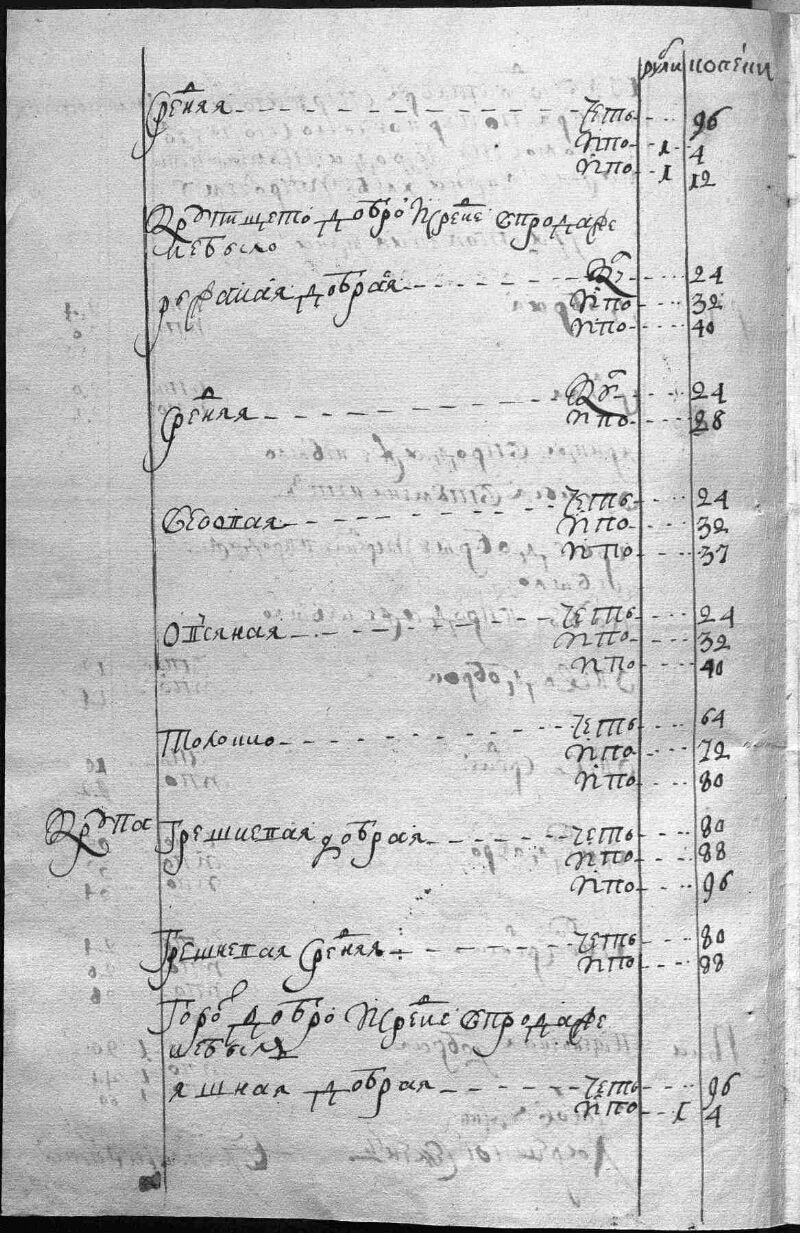 рубли копейки
средняя четь 96
и по 1 4
и по 1 12
крупитчетой доброй и средней в продаже
не было
ржаная добрая ку 24
и по 32
и по 40
средняя ку 24
и по 28
четь 24
и по 32
и по 37
овсяная четь 24
и по 32
и по 40
толокно четь 64
и по 72
и по 80
крупа грешневая добрая четь 80
и по 88
и по 96
грешневая средняя четь 80
и по 88
горох доброй и средней в продаже
не было
яшная добрая четь 96
и по 1 4